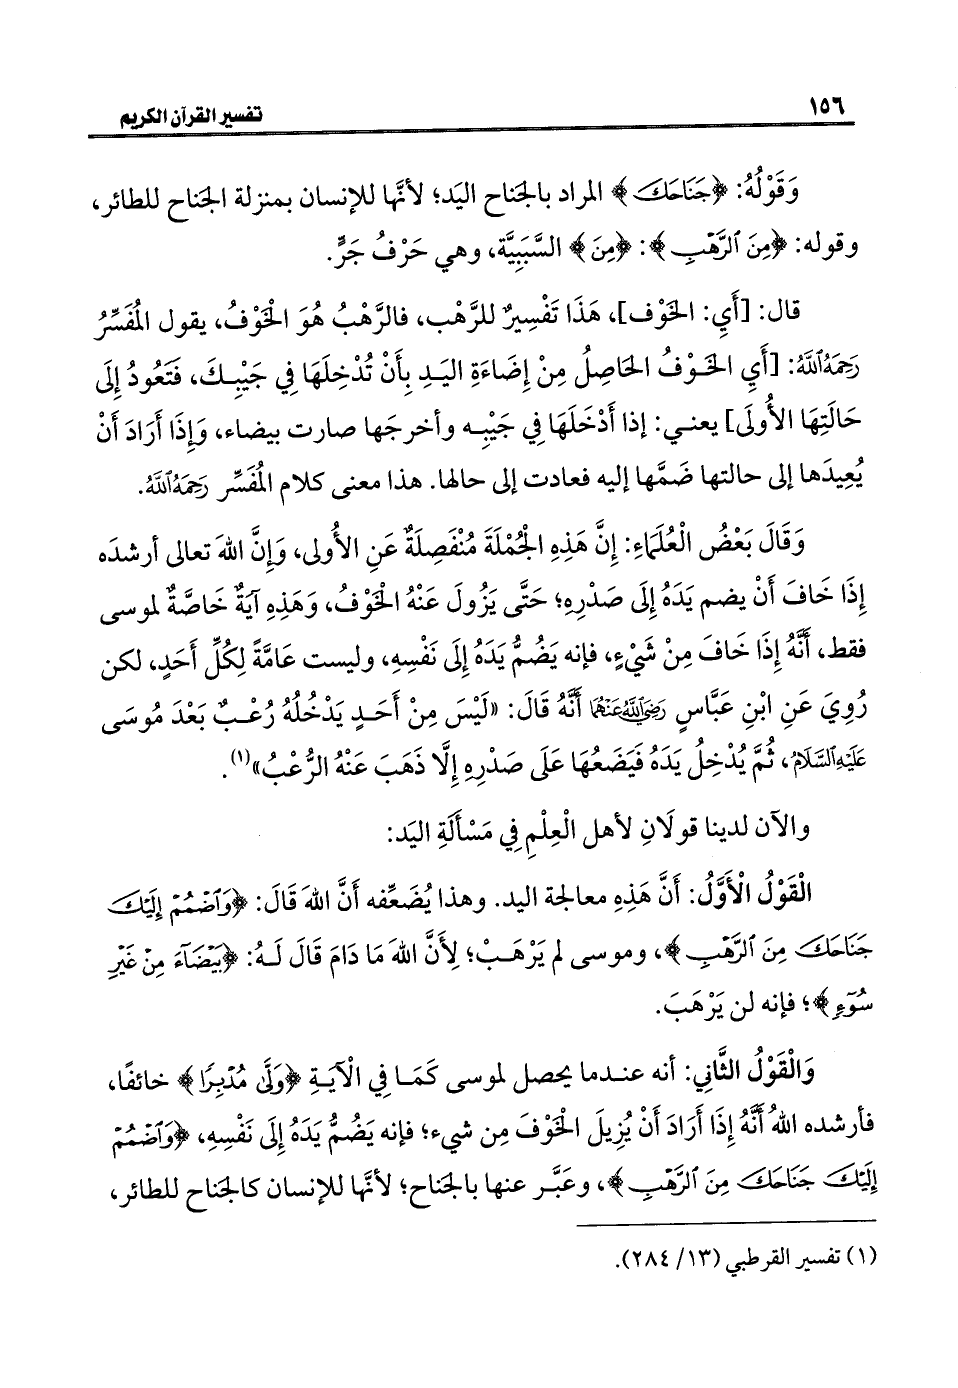 ١٥٦ تفسير القرآن الكريم
وَقَوْلُهُ: ﴿جَنَاحَكَ﴾ المراد بالجَناح اليَد؛ لأنَّها للإنسان بمنزلة الجَناح للطائر،
وقوله: ﴿مِنَ ٱلرَّهْبِ﴾: ﴿مِنَ﴾ السَّبَبِيَّة، وهي حَرْفُ جَرٍّ.
قال: [أَي: الخَوْف]، هَذَا تَفْسِيرٌ للرَّهْب، فالرَّهْبُ هُوَ الخَوْفُ، يقول المُفَسِّرُ
رَحِمَهُ ٱللَّهُ: [أَيِ الخَوْفُ الحَاصِلُ مِنْ إِضَاءَةِ اليَدِ بِأَنْ تُدْخِلَهَا فِي جَيْبِكَ، فَتَعُودُ إِلَى
حَالَتِهَا الأُولَى] يعني: إذا أَدْخَلَهَا فِي جَيْبِه وأخرجَها صارت بيضاء، وَإِذَا أَرَادَ أَنْ
يُعِيدَها إلى حالتها ضَمَّها إليه فعادت إلى حالها. هذا معنى كلام المُفَسِّر رَحِمَهُ ٱللَّهُ.
وَقَالَ بَعْضُ الْعُلَمَاءِ: إِنَّ هَذِهِ الجُمْلَةَ مُنْفَصِلَةٌ عَنِ الأُولى، وَإِنَّ اللهَ تعالى أرشدَه
إِذَا خَافَ أَنْ يضم يَدَهُ إِلَى صَدْرِهِ؛ حَتَّى يَزُولَ عَنْهُ الخَوْفُ، وَهَذِهِ آيَةٌ خَاصَّةٌ لموسى
فقط، أَنَّهُ إِذَا خَافَ مِنْ شَيْءٍ، فإنه يَضُمُّ يَدَهُ إِلَى نَفْسِهِ، وليست عَامَّةً لِكُلِّ أَحَدٍ، لكن
رُوِيَ عَنِ ابْنِ عَبَّاسٍ رَضِيَ ٱللَّهُ عَنْهُمَا أَنَّهُ قَالَ: «لَيْسَ مِنْ أَحَدٍ يَدْخُلُهُ رُعْبٌ بَعْدَ مُوسَى
عَلَيْهِ ٱلسَّلَامُ، ثُمَّ يُدْخِلُ يَدَهُ فَيَضَعُهَا عَلَى صَدْرِهِ إِلَّا ذَهَبَ عَنْهُ الرُّعْبُ»(١).
والآن لدينا قولَانِ لأهل الْعِلْمِ فِي مَسْأَلَةِ اليَد:
الْقَوْلُ الْأَوَّلُ: أَنَّ هَذِهِ معالجة اليد. وهذا يُضَعِّفه أَنَّ اللهَ قَالَ: ﴿وَٱضْمُمْ إِلَيْكَ
جَنَاحَكَ مِنَ ٱلرَّهْبِ﴾، وموسى لم يَرْهَبْ؛ لِأَنَّ اللهَ مَا دَامَ قَالَ لَهُ: ﴿بَيْضَآءَ مِنْ غَيْرِ
سُوٓءٍ﴾؛ فإنه لن يَرْهَبَ.
وَالْقَوْلُ الثَّانِي: أنه عندما يحصل لموسى كَمَا فِي الْآيَةِ ﴿وَلَّىٰ مُدْبِرًا﴾ خائفًا،
فأرشده اللهُ أَنَّهُ إِذَا أَرَادَ أَنْ يُزِيلَ الخَوْفَ مِن شيء؛ فإنه يَضُمُّ يَدَهُ إِلَى نَفْسِهِ، ﴿وَٱضْمُمْ
إِلَيْكَ جَنَاحَكَ مِنَ ٱلرَّهْبِ﴾، وعَبَّر عنها بالجَناح؛ لأنَّها للإنسان كالجَناح للطائر،
(١) تفسير القرطبي (١٣/ ٢٨٤).